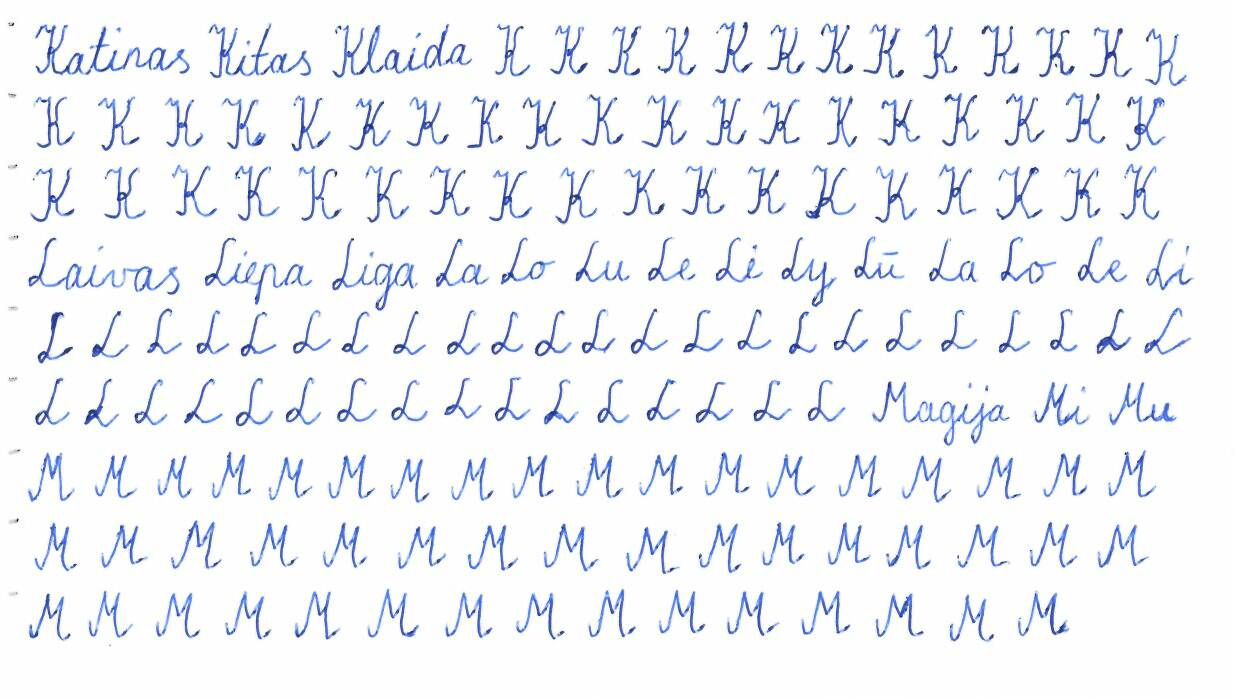 Katinas Kitas Klaida K K K K K K K K K K K K K
K K K K K K K K K K K K K K K K K K K
K K K K K K K K K K K K K K K K K K
Laivas Liepa Liga La Lo Lu Le Lė Ly Lū La Lo Le Li
L L L L L L L L L L L L L L L L L L L L L L L
L L L L L L L L L L L L L L L L Magija Mi Mu
M M M M M M M M M M M M M M M M M M
M M M M M M M M M M M M M M M M
M M M M M M M M M M M M M M M